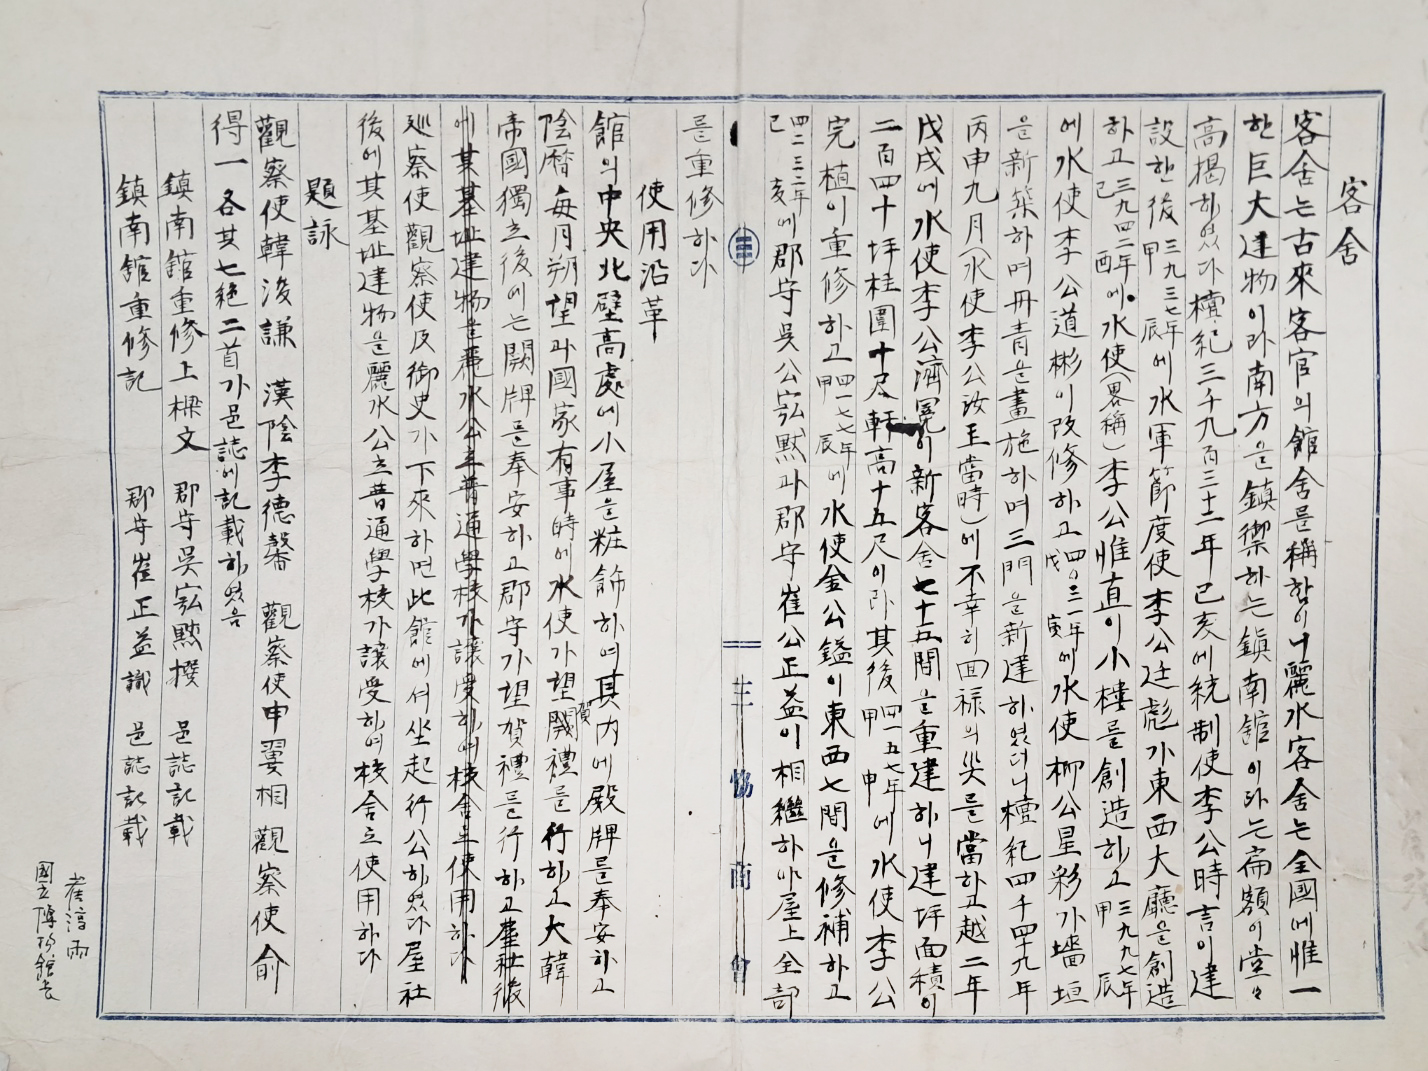 客舍
客舍는古來客官의館舍를稱함이니麗水客舍는全國에惟一
한巨大建物이라南方을鎮禦하는鎮南舘이라는扁額이堂々
高揭하였다檀紀三千九百三十二年己亥에統制使李公時言이建
設한後三九三七年甲辰에水軍節度使李公廷彪가東西大廳을創造
하고三九四二年己酉에水使(畧稱)李公惟直이小樓를創造하고三九九七年甲辰
에水使李公道彬이改修하고四〇三一年戊寅에水使柳公星彩가墻垣
을新築하며丹青을畫施하며三門을新建하였더니檀紀四千四十九年
丙申九月(水使李公汝玉當時)에不幸히回禄의災를當하고越二年
戊戌에水使李公濟冕이新客舍七十五間을重建하니建坪面積이
二百四十坪柱圍十尺軒高十五尺이라其後四一五七年甲申에水使李公
完植이重修하고四一七七年甲辰에水使金公鎰이東西七間을修補하고
四二三二年己亥에郡守吳公宖默과郡守崔公正益이相繼하야屋上全部
를重修하다
使用沿革
館의中央北壁高處에小屋을粧飾하여其內에殿牌를奉安하고
陰曆每月朔望과國家有事時에水使가望賀禮를行하고大韓
帝國獨立後에는闕牌를奉安하고郡守가望賀禮를行하고屋社後
에其基址建物을麗水公立普通學校가讓受하여校舍로使用하다
巡察使觀察使及御史가下來하면此館에서坐起行公하였다屋社
後에其基址建物을麗水公立普通學校가讓受하여校舍로使用하다
題詠
觀察使韓浚謙 漢陰李德馨 觀察使申翼相 觀察使俞
得一各其七絕二首가邑誌에記載하였음
鎮南館重修上樑文 郡守吳宖默撰 邑誌記載
鎮南館重修記 郡守崔正益識 邑誌記載
崔淳雨
國立博物館長
商會